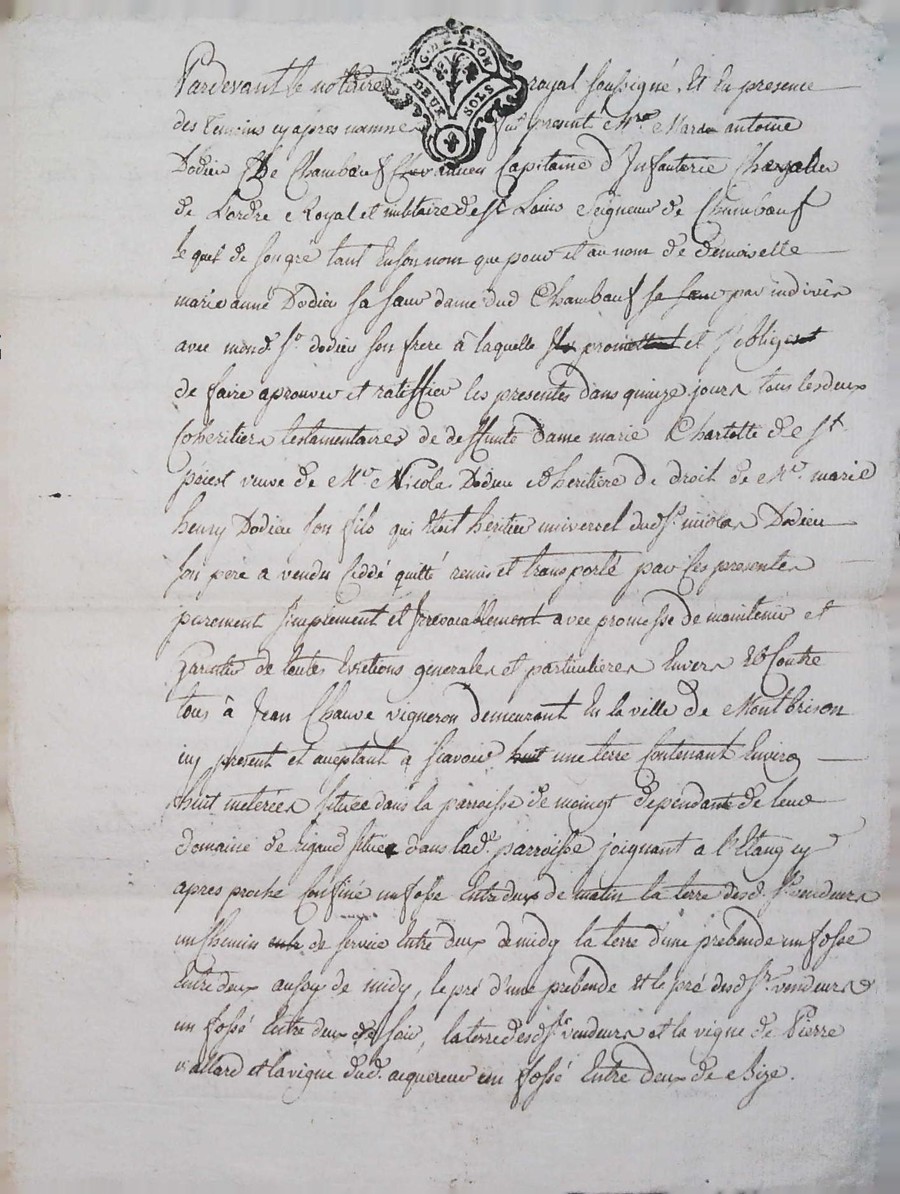 G. DE LYON
DEUX SOLS
Pardevant le notaire royal soussigné, Et En presence
des temoins cy apres nommes fut present Mre Marc antoine
Dodieu De Chambœuf ancien Capitaine d'Infanterie Chevalier
de Lordre Royal et militaire de st Louis Seigneur de Chambœuf
le quel de son gré tant Enson nom que pour et au nom de demoiselle
marie anne Dodieu sa sœur dame dud Chambœuf sa sœur par indivis
avec mond. sr. dodieu son frere à laquelle promettent et s'obligent
de faire aprouver et ratiffier les presentes dans quinze jours tous les deux
Coheritiers testamentaires de deffunte Dame marie Charlotte de st.
priest veuve de Mre Nicolas Dodieu et heritiere de droit de Mre. marie
henry Dodieu son fils qui Etoit heritier universel dud sr. nicolas Dodieu
son pere a vendu Ceddé quitté remis et transporté par Ces presentes
purement simplement et Irrevocablement avec promesse de maintenir et
Garantir de toutes Evictions generales et particulieres Envers Et Contre
tous à Jean Chauve vigneron demeurant En la ville de Montbrison
icy present et aceptant a scavoir huit une terre Contenant Environ
huit meterées située dans la parroisse de moingt dependante de leur
domaine de Rigaud située dans lad. parroisse joignant a l'Etang cy
apres proche Confiné un fosse Entre deux de matin la terre desd. srs. vendeurs
un Chemin de service Entre deux de midy la terre d'une prebende un fosse
Entre deux aussy de midy, le pré d'une prebende et le pré desd srs. vendeurs
un fossé Entre deux de soir, la terre desd srs. vendeurs et la vigne de Pierre
vallard et la vigne dud. acquereur un fossé Entre deux de Bize.